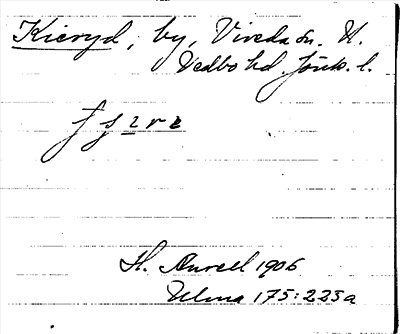 Kieryd, by, Vireda sn. N.
Vedbo hd. Jönk. l.
H. Aurell 1906
Ulma 175:223a